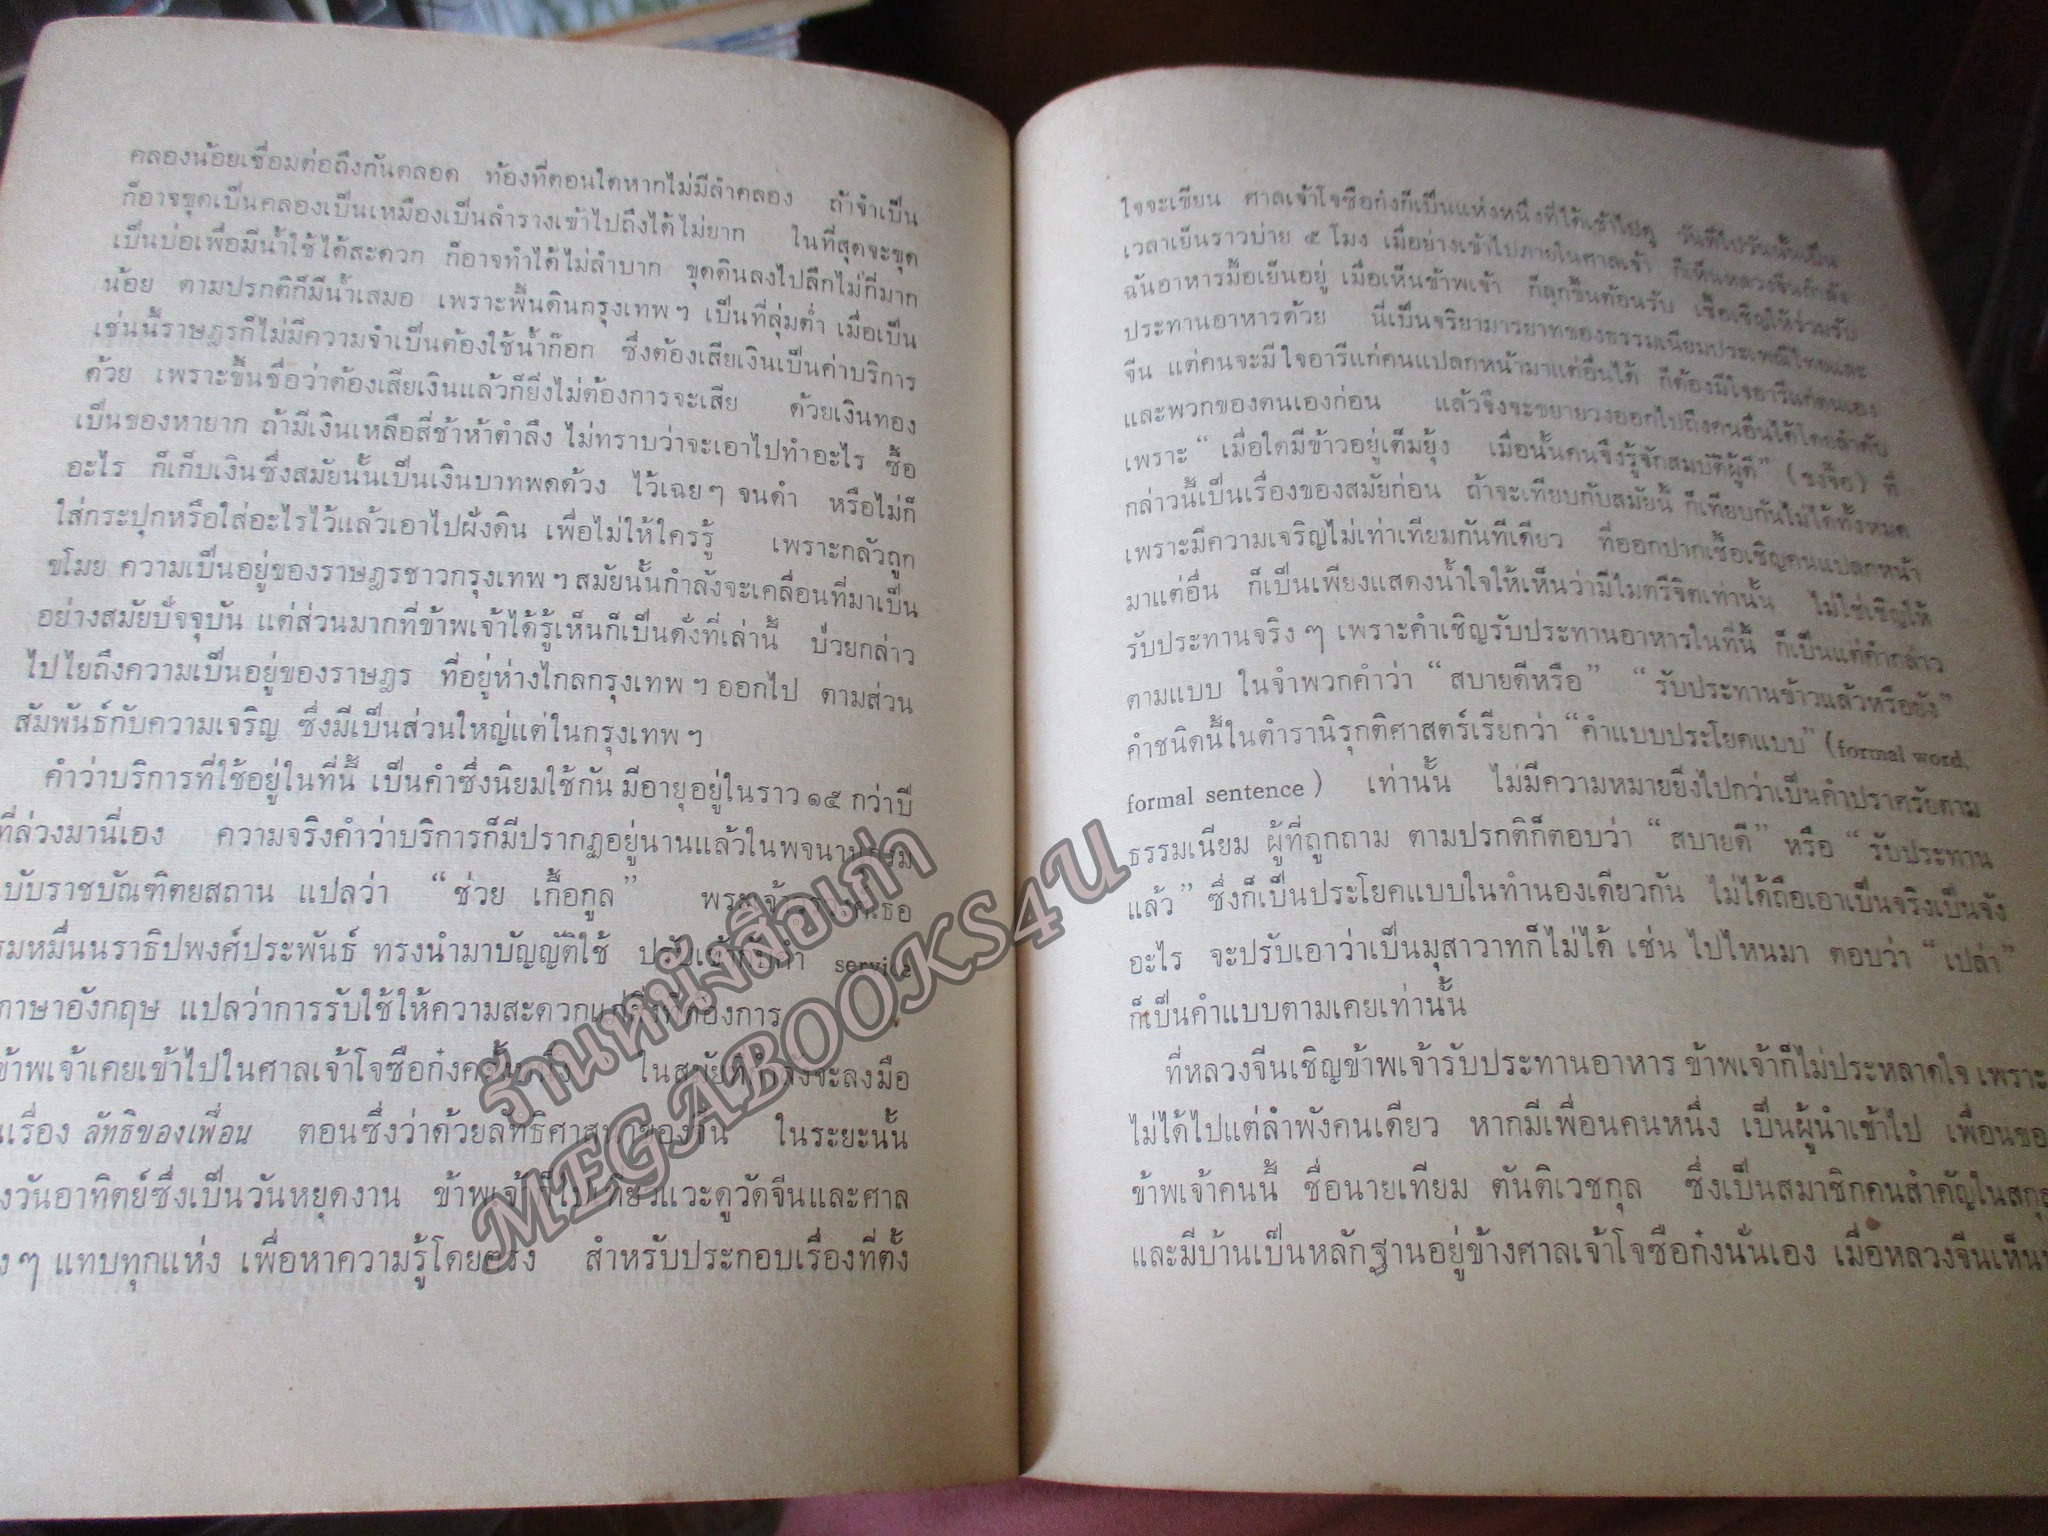 คลองน้อยเชื่อมต่อถึงกันตลอด ท้องที่ตอนใดหากไม่มีลำคลอง ถ้าจำเป็น
ก็อาจขุดเป็นคลองเป็นเหมืองเป็นลำรางเข้าไปถึงได้ไม่ยาก ในที่สุดจะขุด
เป็นบ่อเพื่อมีน้ำใช้ได้สะดวก ก็อาจทำได้ไม่ลำบาก ขุดดินลงไปลึกไม่กี่มาก
น้อย ตามปรกติก็มีน้ำเสมอ เพราะพื้นดินกรุงเทพฯ เป็นที่ลุ่มต่ำ เมื่อเป็น
เช่นนี้ราษฎรก็ไม่มีความจำเป็นต้องใช้น้ำก๊อก ซึ่งต้องเสียเงินเป็นค่าบริการ
ด้วย เพราะขึ้นชื่อว่าต้องเสียเงินแล้วก็ยิ่งไม่ต้องการจะเสีย ด้วยเงินทอง
เป็นของหายาก ถ้ามีเงินเหลือสี่ช้าห้าตำลึง ไม่ทราบว่าจะเอาไปทำอะไร ซื้อ
อะไร ก็เก็บเงินซึ่งสมัยนั้นเป็นเงินบาทพดด้วง ไว้เฉยๆ จนดำ หรือไม่ก็
ใส่กระปุกหรือใส่อะไรไว้แล้วเอาไปฝังดิน เพื่อไม่ให้ใครรู้ เพราะกลัวถูก
ขโมย ความเป็นอยู่ของราษฎรชาวกรุงเทพฯ สมัยนั้นกำลังจะเคลื่อนที่มาเป็น
อย่างสมัยปัจจุบัน แต่ส่วนมากที่ข้าพเจ้าได้รู้เห็นก็เป็นดั่งที่เล่านี้ ป่วยกล่าว
ไปไยถึงความเป็นอยู่ของราษฎร ที่อยู่ห่างไกลกรุงเทพฯ ออกไป ตามส่วน
สัมพันธ์กับความเจริญ ซึ่งมีเป็นส่วนใหญ่แต่ในกรุงเทพฯ
คำว่าบริการที่ใช้อยู่ในที่นี้ เป็นคำซึ่งนิยมใช้กัน มีอายุอยู่ในราว ๑๕ กว่าปี
ที่ล่วงมานี่เอง ความจริงคำว่าบริการก็มีปรากฏอยู่นานแล้วในพจนานุกรม
บับราชบัณฑิตยสถาน แปลว่า “ช่วย เกื้อกูล” พระเจ้าวรวงศ์เธอ
รมหมื่นนราธิปพงศ์ประพันธ์ ทรงนำมาบัญญัติใช้ ปรับเข้ากับคำ service
ภาษาอังกฤษ แปลว่าการรับใช้ให้ความสะดวกแก่สิ่งที่ต้องการ
ข้าพเจ้าเคยเข้าไปในศาลเจ้าโจซือก๋งครั้งหนึ่ง ในสมัยที่กำลังจะลงมือ
นเรื่อง ลัทธิของเพื่อน ตอนซึ่งว่าด้วยลัทธิศาสนาของจีน ในระยะนั้น
งวันอาทิตย์ซึ่งเป็นวันหยุดงาน ข้าพเจ้าก็ไปเที่ยวแวะดูวัดจีนและศาล
งๆ แทบทุกแห่ง เพื่อหาความรู้โดยตรง สำหรับประกอบเรื่องที่ตั้ง
ใจจะเขียน ศาลเจ้าโจซือก๋งก็เป็นแห่งหนึ่งที่ได้เข้าไปดู วันที่ไปวันนั้นเป็น
เวลาเย็นราวบ่าย ๕ โมง เมื่อย่างเข้าไปภายในศาลเจ้า ก็เห็นหลวงจีนกำลัง
ฉันอาหารมื้อเย็นอยู่ เมื่อเห็นข้าพเจ้า ก็ลุกขึ้นต้อนรับ เชื้อเชิญให้ร่วมรับ
ประทานอาหารด้วย นี่เป็นจริยามารยาทของธรรมเนียมประเพณีไทยและ
จีน แต่คนจะมีใจอารีแก่คนแปลกหน้ามาแต่อื่นได้ ก็ต้องมีใจอารีแก่ตนเอง
และพวกของตนเองก่อน แล้วจึงจะขยายวงออกไปถึงคนอื่นได้โดยลำดับ
เพราะ “เมื่อใดมีข้าวอยู่เต็มยุ้ง เมื่อนั้นคนจึงรู้จักสมบัติผู้ดี” (ขงจื๊อ) ที่
กล่าวนี้เป็นเรื่องของสมัยก่อน ถ้าจะเทียบกับสมัยนี้ ก็เทียบกันไม่ได้ทั้งหมด
เพราะมีความเจริญไม่เท่าเทียมกันทีเดียว ที่ออกปากเชื้อเชิญคนแปลกหน้า
มาแต่อื่น ก็เป็นเพียงแสดงน้ำใจให้เห็นว่ามีไมตรีจิตเท่านั้น ไม่ใช่เชิญให้
รับประทานจริงๆ เพราะคำเชิญรับประทานอาหารในที่นี้ ก็เป็นแต่คำกล่าว
ตามแบบ ในจำพวกคำว่า “สบายดีหรือ” “รับประทานข้าวแล้วหรือยัง”
คำชนิดนี้ในตำรานิรุกติศาสตร์เรียกว่า “คำแบบประโยคแบบ” (formal word,
formal sentence) เท่านั้น ไม่มีความหมายยิ่งไปกว่าเป็นคำปราศรัยตาม
ธรรมเนียม ผู้ที่ถูกถาม ตามปรกติก็ตอบว่า “สบายดี” หรือ “รับประทาน
แล้ว” ซึ่งก็เป็นประโยคแบบในทำนองเดียวกัน ไม่ได้ถือเอาเป็นจริงเป็นจัง
อะไร จะปรับเอาว่าเป็นมุสาวาทก็ไม่ได้ เช่น ไปไหนมา ตอบว่า “เปล่า”
ก็เป็นคำแบบตามเคยเท่านั้น
ที่หลวงจีนเชิญข้าพเจ้ารับประทานอาหาร ข้าพเจ้าก็ไม่ประหลาดใจ เพราะ
ไม่ได้ไปแต่ลำพังคนเดียว หากมีเพื่อนคนหนึ่ง เป็นผู้นำเข้าไป เพื่อนขอ
ข้าพเจ้าคนนี้ ชื่อนายเทียม ตันติเวชกุล ซึ่งเป็นสมาชิกคนสำคัญในสกุล
และมีบ้านเป็นหลักฐานอยู่ข้างศาลเจ้าโจซือก๋งนั่นเอง เมื่อหลวงจีนเห็น
ร้านหนังสือเก่า
MEGABOOKS4U